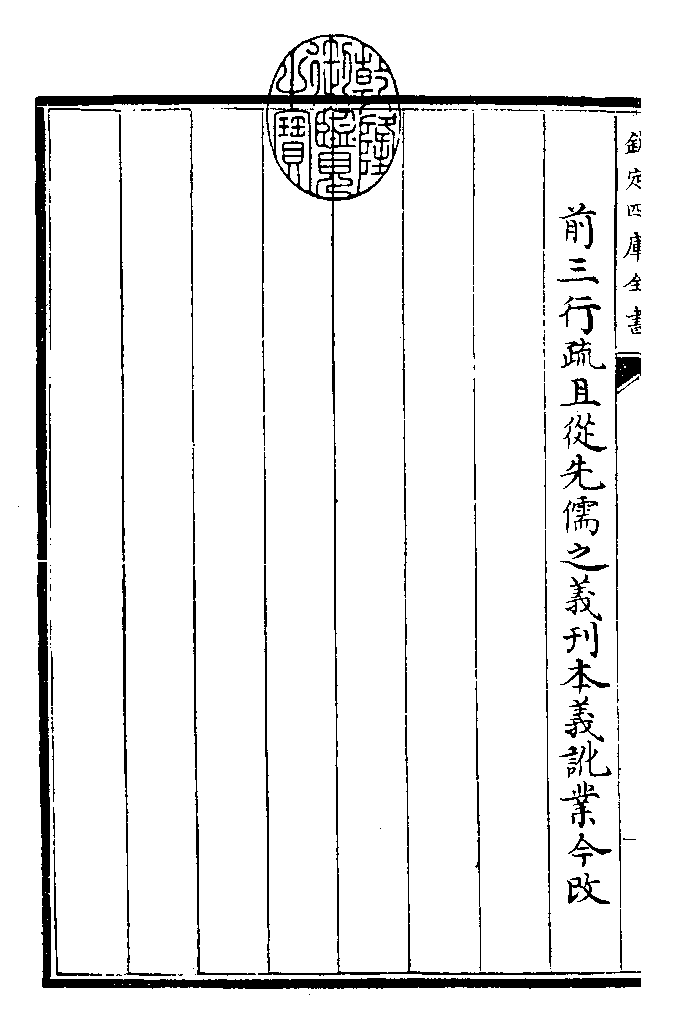 乾隆御覽之寶
欽定四庫全書
前三行疏且從先儒之義刊本義訛業今改